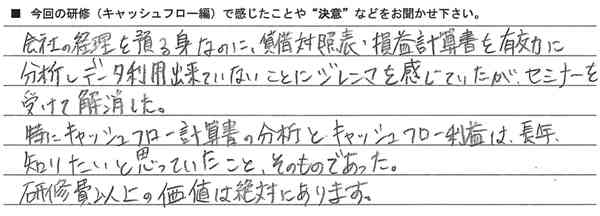 ■ 今回の研修（キャッシュフロー編）で感じたことや“決意”などをお聞かせ下さい。
会社の経理を預る身なのに、貸借対照表・損益計算書を有効に
分析しデータ利用出来ていないことにジレンマを感じていたが、セミナーを
受けて解消した。
特にキャッシュフロー計算書の分析とキャッシュフロー利益は、長年、
知りたいと思っていたこと、そのものであった。
研修費以上の価値は絶対にあります。